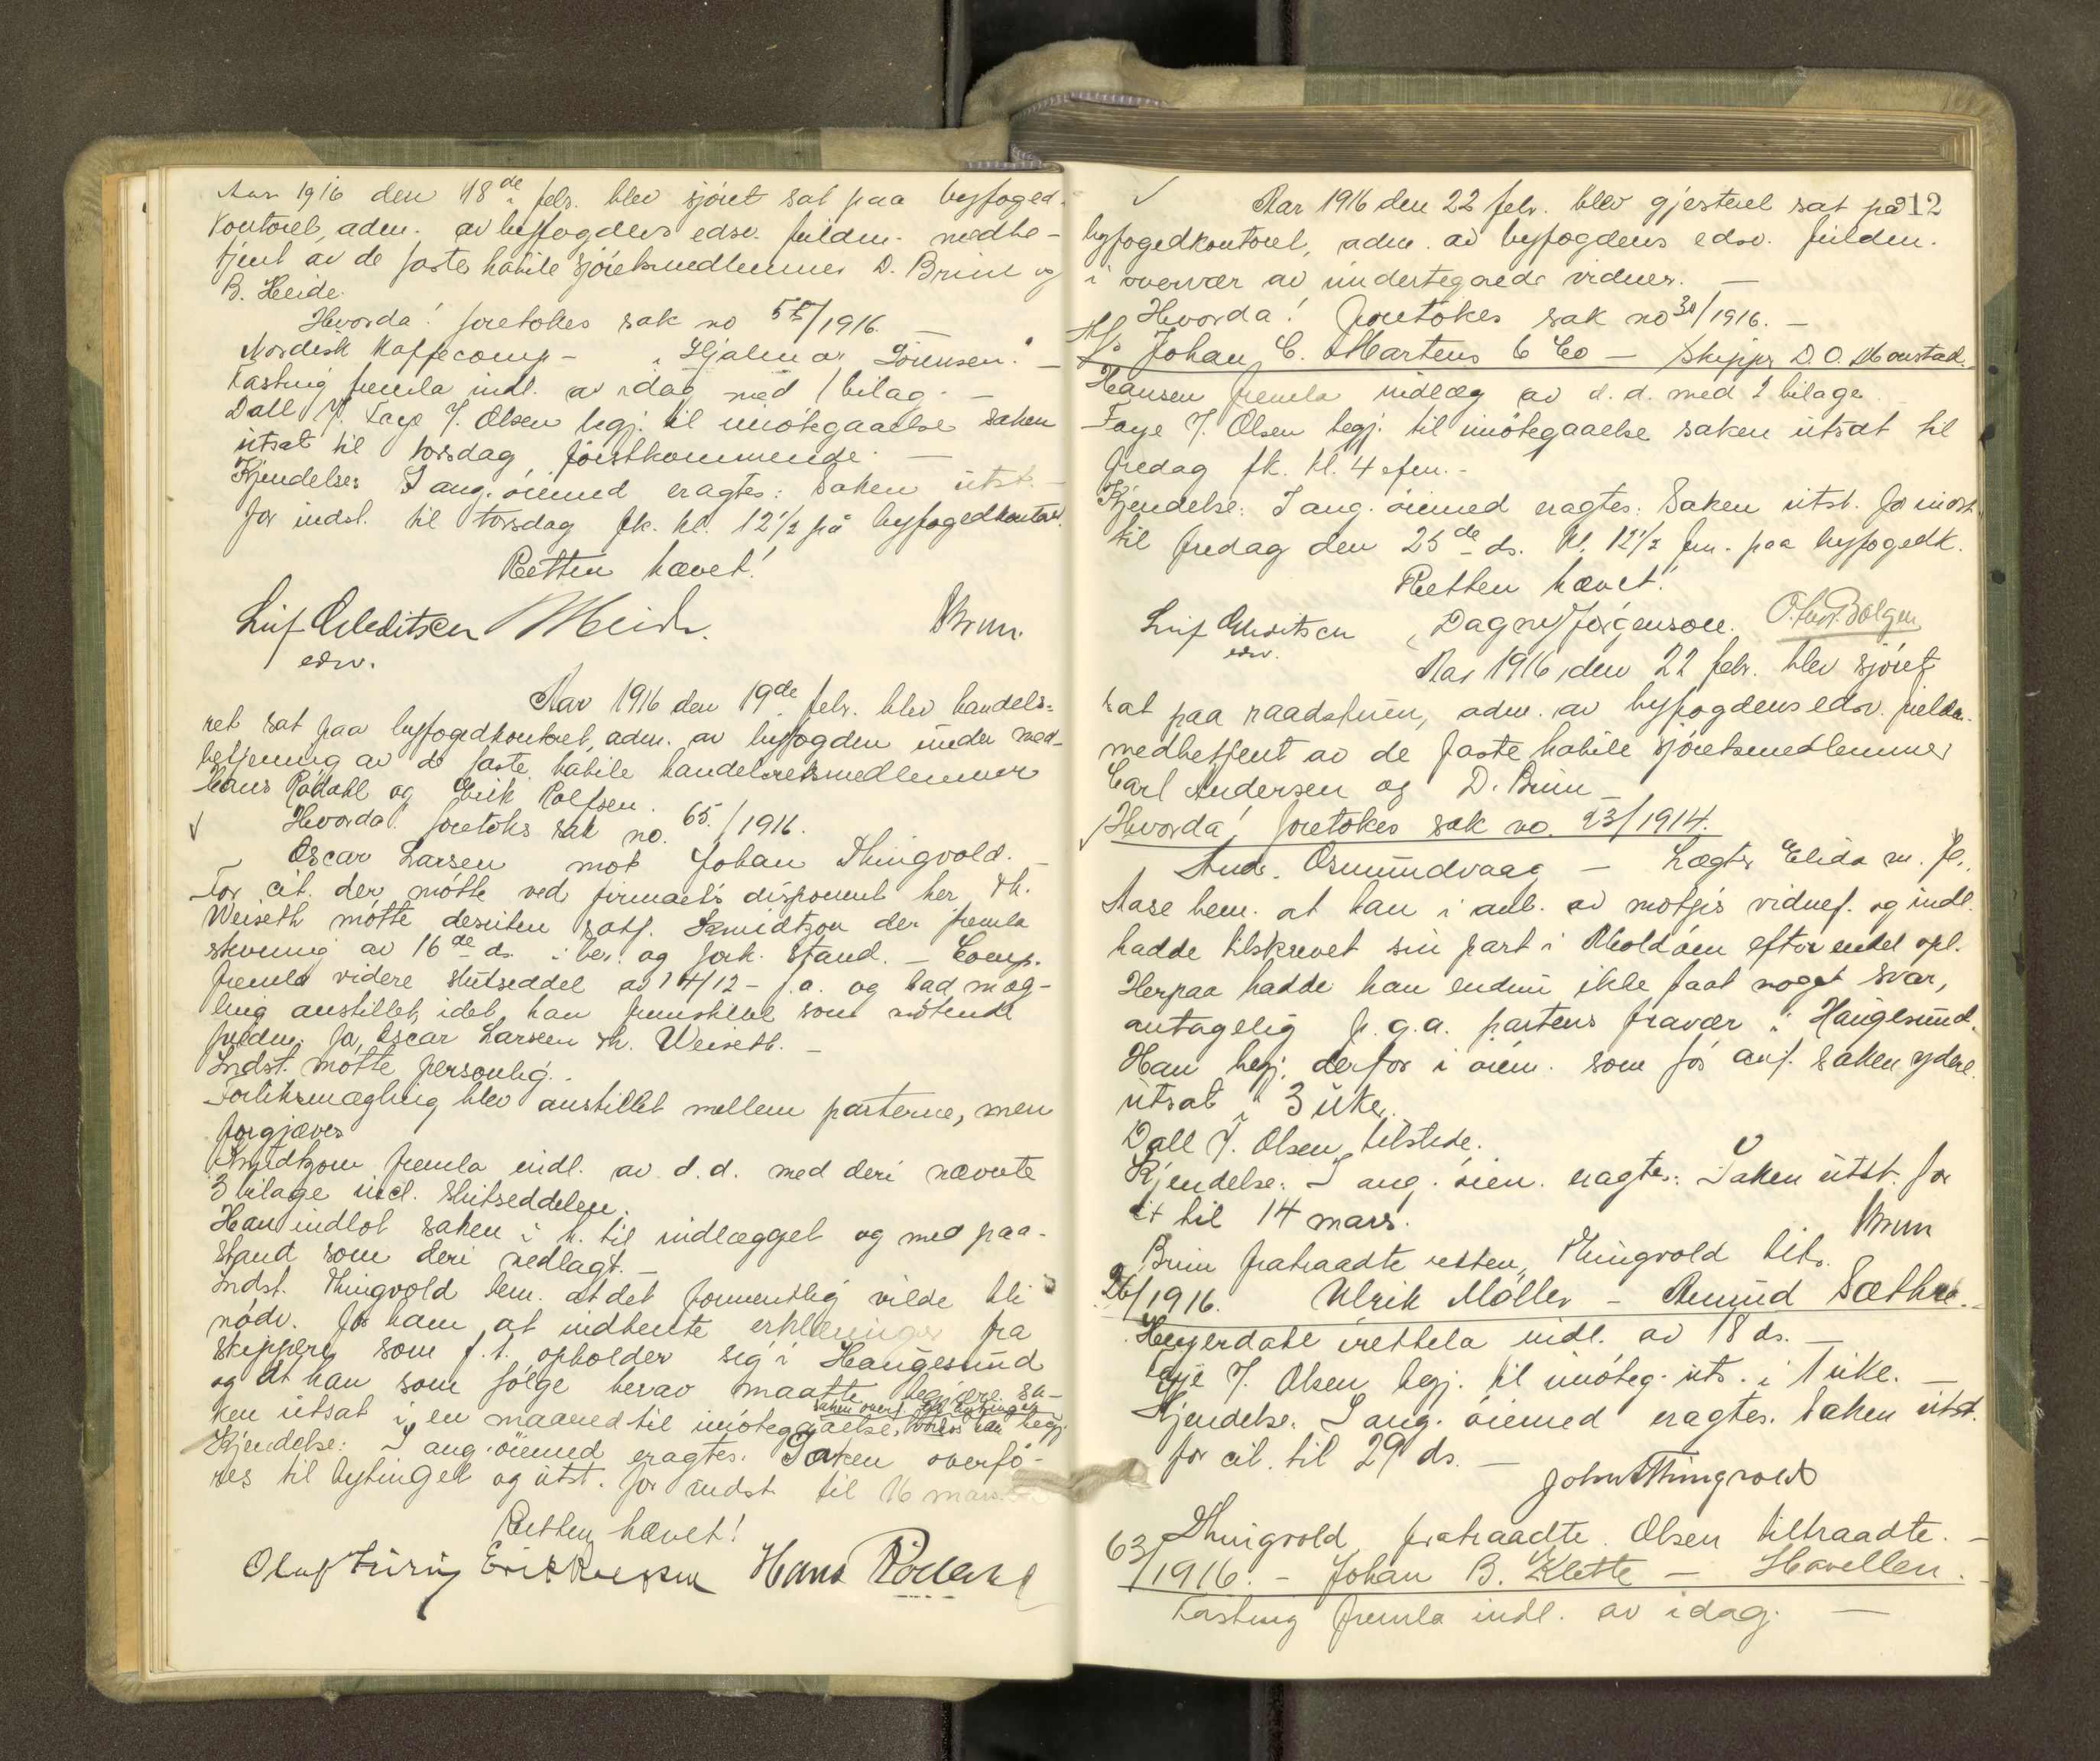 Aar 1916 den 18de febr. blev sjöret sat paa byfoged-
kontoret, adm. av byfogdens edsv. fuldm. medbe-
tjent av de faste habile sjöretsmedlemmer D. Bruun og
B. Heide.
Hvorda! foretokes sak no 55/1916. —
Nordisk Kaffecomp — "Hjalmar Sörensen." —
Kastnig fremla indl. av idag med 1 bilag. —
Dall f. Faye J. Olsen begj. til imötegaaelse saken
utsat til torsdag förstkommende. —
Kjendelse: I ang. öiemed eragtes: Saken utst. —
for indst. til torsdag fk. kl. 12 1/2 på byfogedkontor.
Retten hævet!
Leif Arleditsen Heide. Bruun.
edsv.
Aar 1916 den 19de febr. blev handels-
ret sat paa byfogedkontoret, adm. av byfogden under med-
betjening av de faste habile handelsretsmedlemmer
Hans Rödahl og Erik Rolfsen.
✓ Hvorda! foretoks sak no. 65/1916.
Oscar Larsen mot Johan Thingvold. —
For cit. der mötte ved firmaets disponent her Th.
Weiseth mötte desuten sakf. Smidtzon der fremla
stevning av 16de ds. i ber. og fork. stand. — Comp.
fremla videre slutseddel av 14/12 - f.a. og bad mæg-
ling anstillet, idet han fremstillet som mötende
fuldm. for Oscar Larsen Th. Weiseth. —
Indst. mötte personlig. -
Forliksmægling blev anstillet mellem parterne, men
forgjæves
Smidtzon fremla indl. av d.d. med deri nævnte
3 bilage incl. slutseddelen.
Han indlot saken i h. til indlægget og med paa-
stand som deri nedlagt. —
Indst. Thingvold bem. at det formentlig vilde bli
nödv. for ham at indhente erklæringer fra
skippere som f.t. opholder sig i Haugesund
og at han som fölge herav maatte begjære sa-
saken overf. til bytinget
ken utsat i en maaned til imötegaaelse, hvorfor han begj.
Kjendelse: I ang. öiemed eragtes: Saken overfö-
res til bytinget og utst. for indst til 16 mars.
Retten hævet!
Oluf Erik Rolfsen Hans Rödahl
✓ Aar 1916 den 22 febr. blev gjesteret sat på 312
byfogedkontoret, adm. av byfogdens edsv. fuldm.
i overvær av undertegnede vidner. —
Hvorda! foretokes sak no 30/1916. —
A/S Johan C. Martens & Co — Skipper D. O. Monstad.
Hansen fremla indlæg av d.d. med 2 bilage.
Faye J. Olsen begj. til imötegaaelse saken utsat til
fredag fk. kl. 4 efm. -
Kjendelse: I ang. öiemed eragtes: Saken utst. for indst.
til fredag den 25de ds. kl. 12 1/2 fm. paa byfogedk.
Retten hævet!
Leif Arleditsen Dagny Jörgensen.
edsv.
Aar 1916 den 22 febr. blev sjöret
sat paa raadstuen, adm. av byfogdens edsv. fuldm.
medbetjent av de faste habile sjöretsmedlemmer
Carl Andersen og D. Bruun —
✓ Hvorda! foretokes sak no. 23/1914.
And. Osmundvaag — Lægter Elida m. fl.
Aase bem. at han i anl. av motp's vidnef. og indl.
hadde tilskrevet sin part i Moldöen efter endel opl.
Herpaa hadde han endnu ikke faat noget svar,
antagelig p.g.a. partens fravær i Haugesund.
Han begj. derfor i öiem. som för anf. saken ydere.
utsat i 3 uker.
Dall f. Olsen tilstede.
Kjendelse: I ang. öiem. eragtes: Saken utst. for
cit til 14 mars. Bruun
Bruun fratraadte retten, Thingvold tilts.
26/1916. Ulrik Möller — Amund Sæthre. —
Heyerdahl irettela indl. av 18 ds. —
Faye J. Olsen begj. til imöteg. uts. i 1 uke. —
Kjendelse. I ang. öiemed eragtes. Saken utst.
for cit. til 29 ds. —
Johan Thingvold
Thingvold fratraadte. Olsen tiltraadte. —
63/1916. - Johan B. Klette — Havellen. -
Kastnig fremla indl. av idag. —